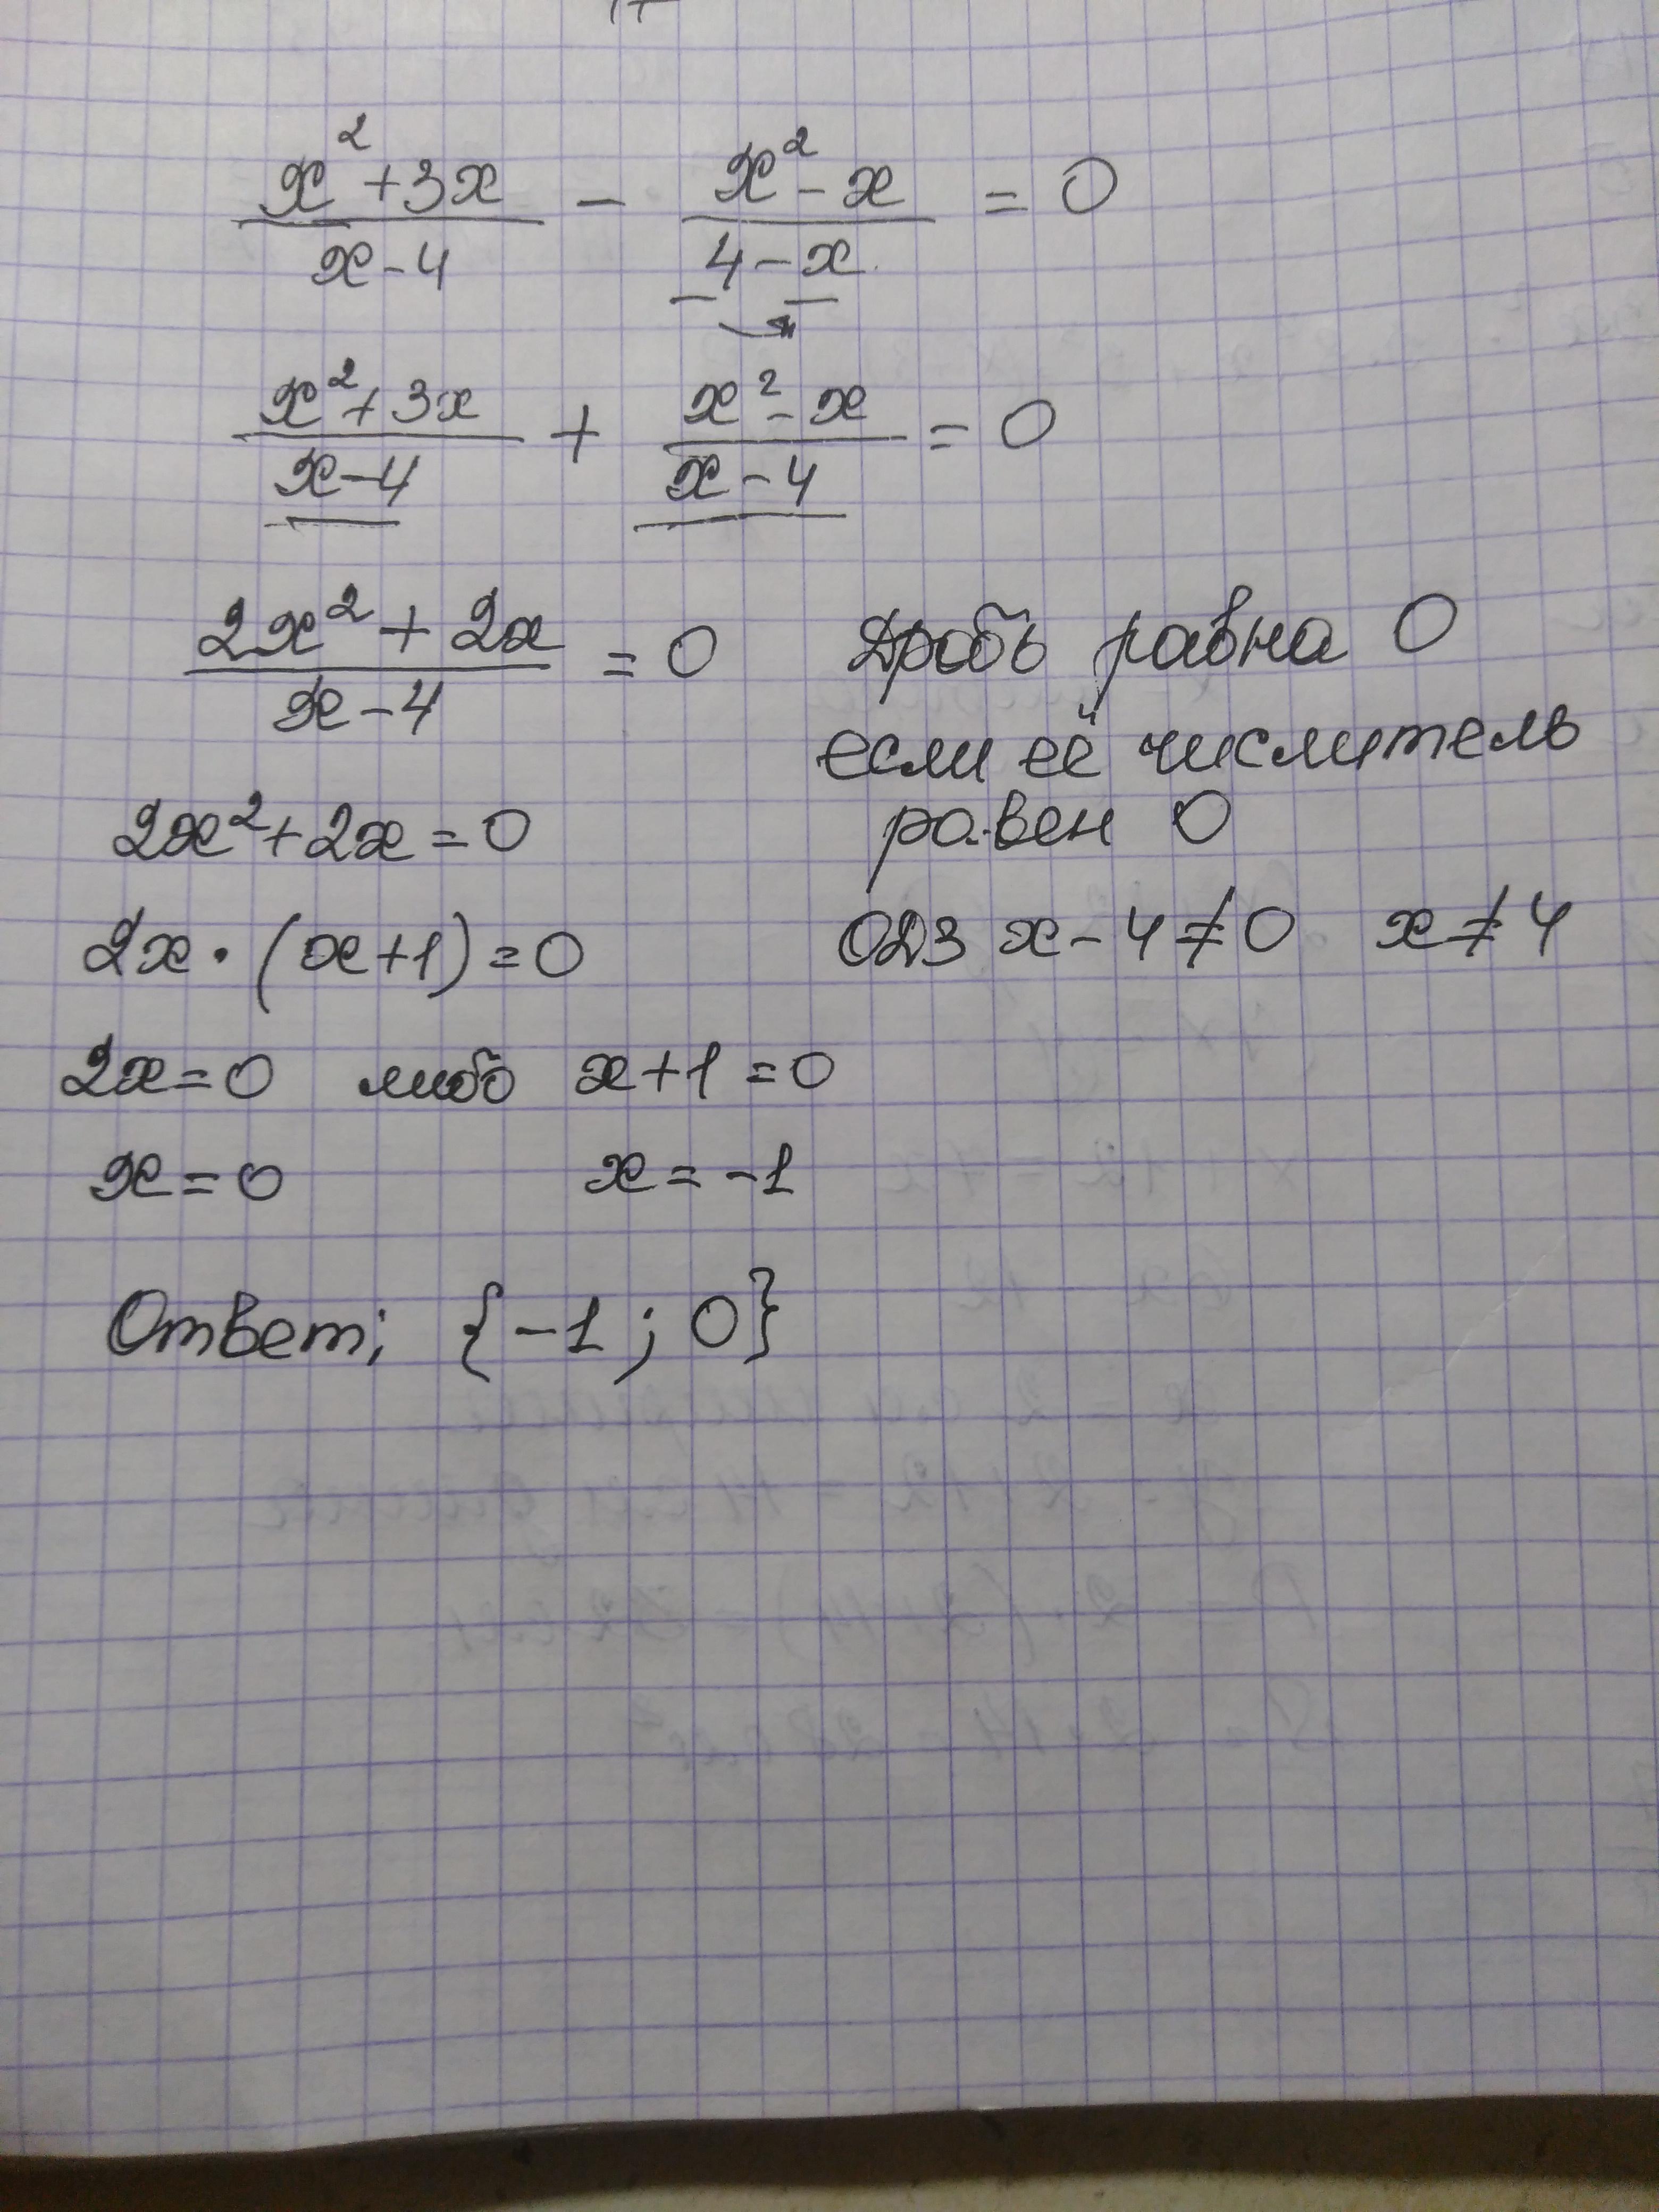 x² + 3x / x - 4 - x² - x / 4 - x = 0
x² + 3x / x - 4 + x² - x / x - 4 = 0
2x² + 2x / x - 4 = 0
Дробь равна 0
если её числитель
равен 0
2x² + 2x = 0
2x · (x + 1) = 0
ОДЗ x - 4 ≠ 0 x ≠ 4
2x = 0 либо x + 1 = 0
x = 0 x = -1
Ответ; {-1 ; 0}